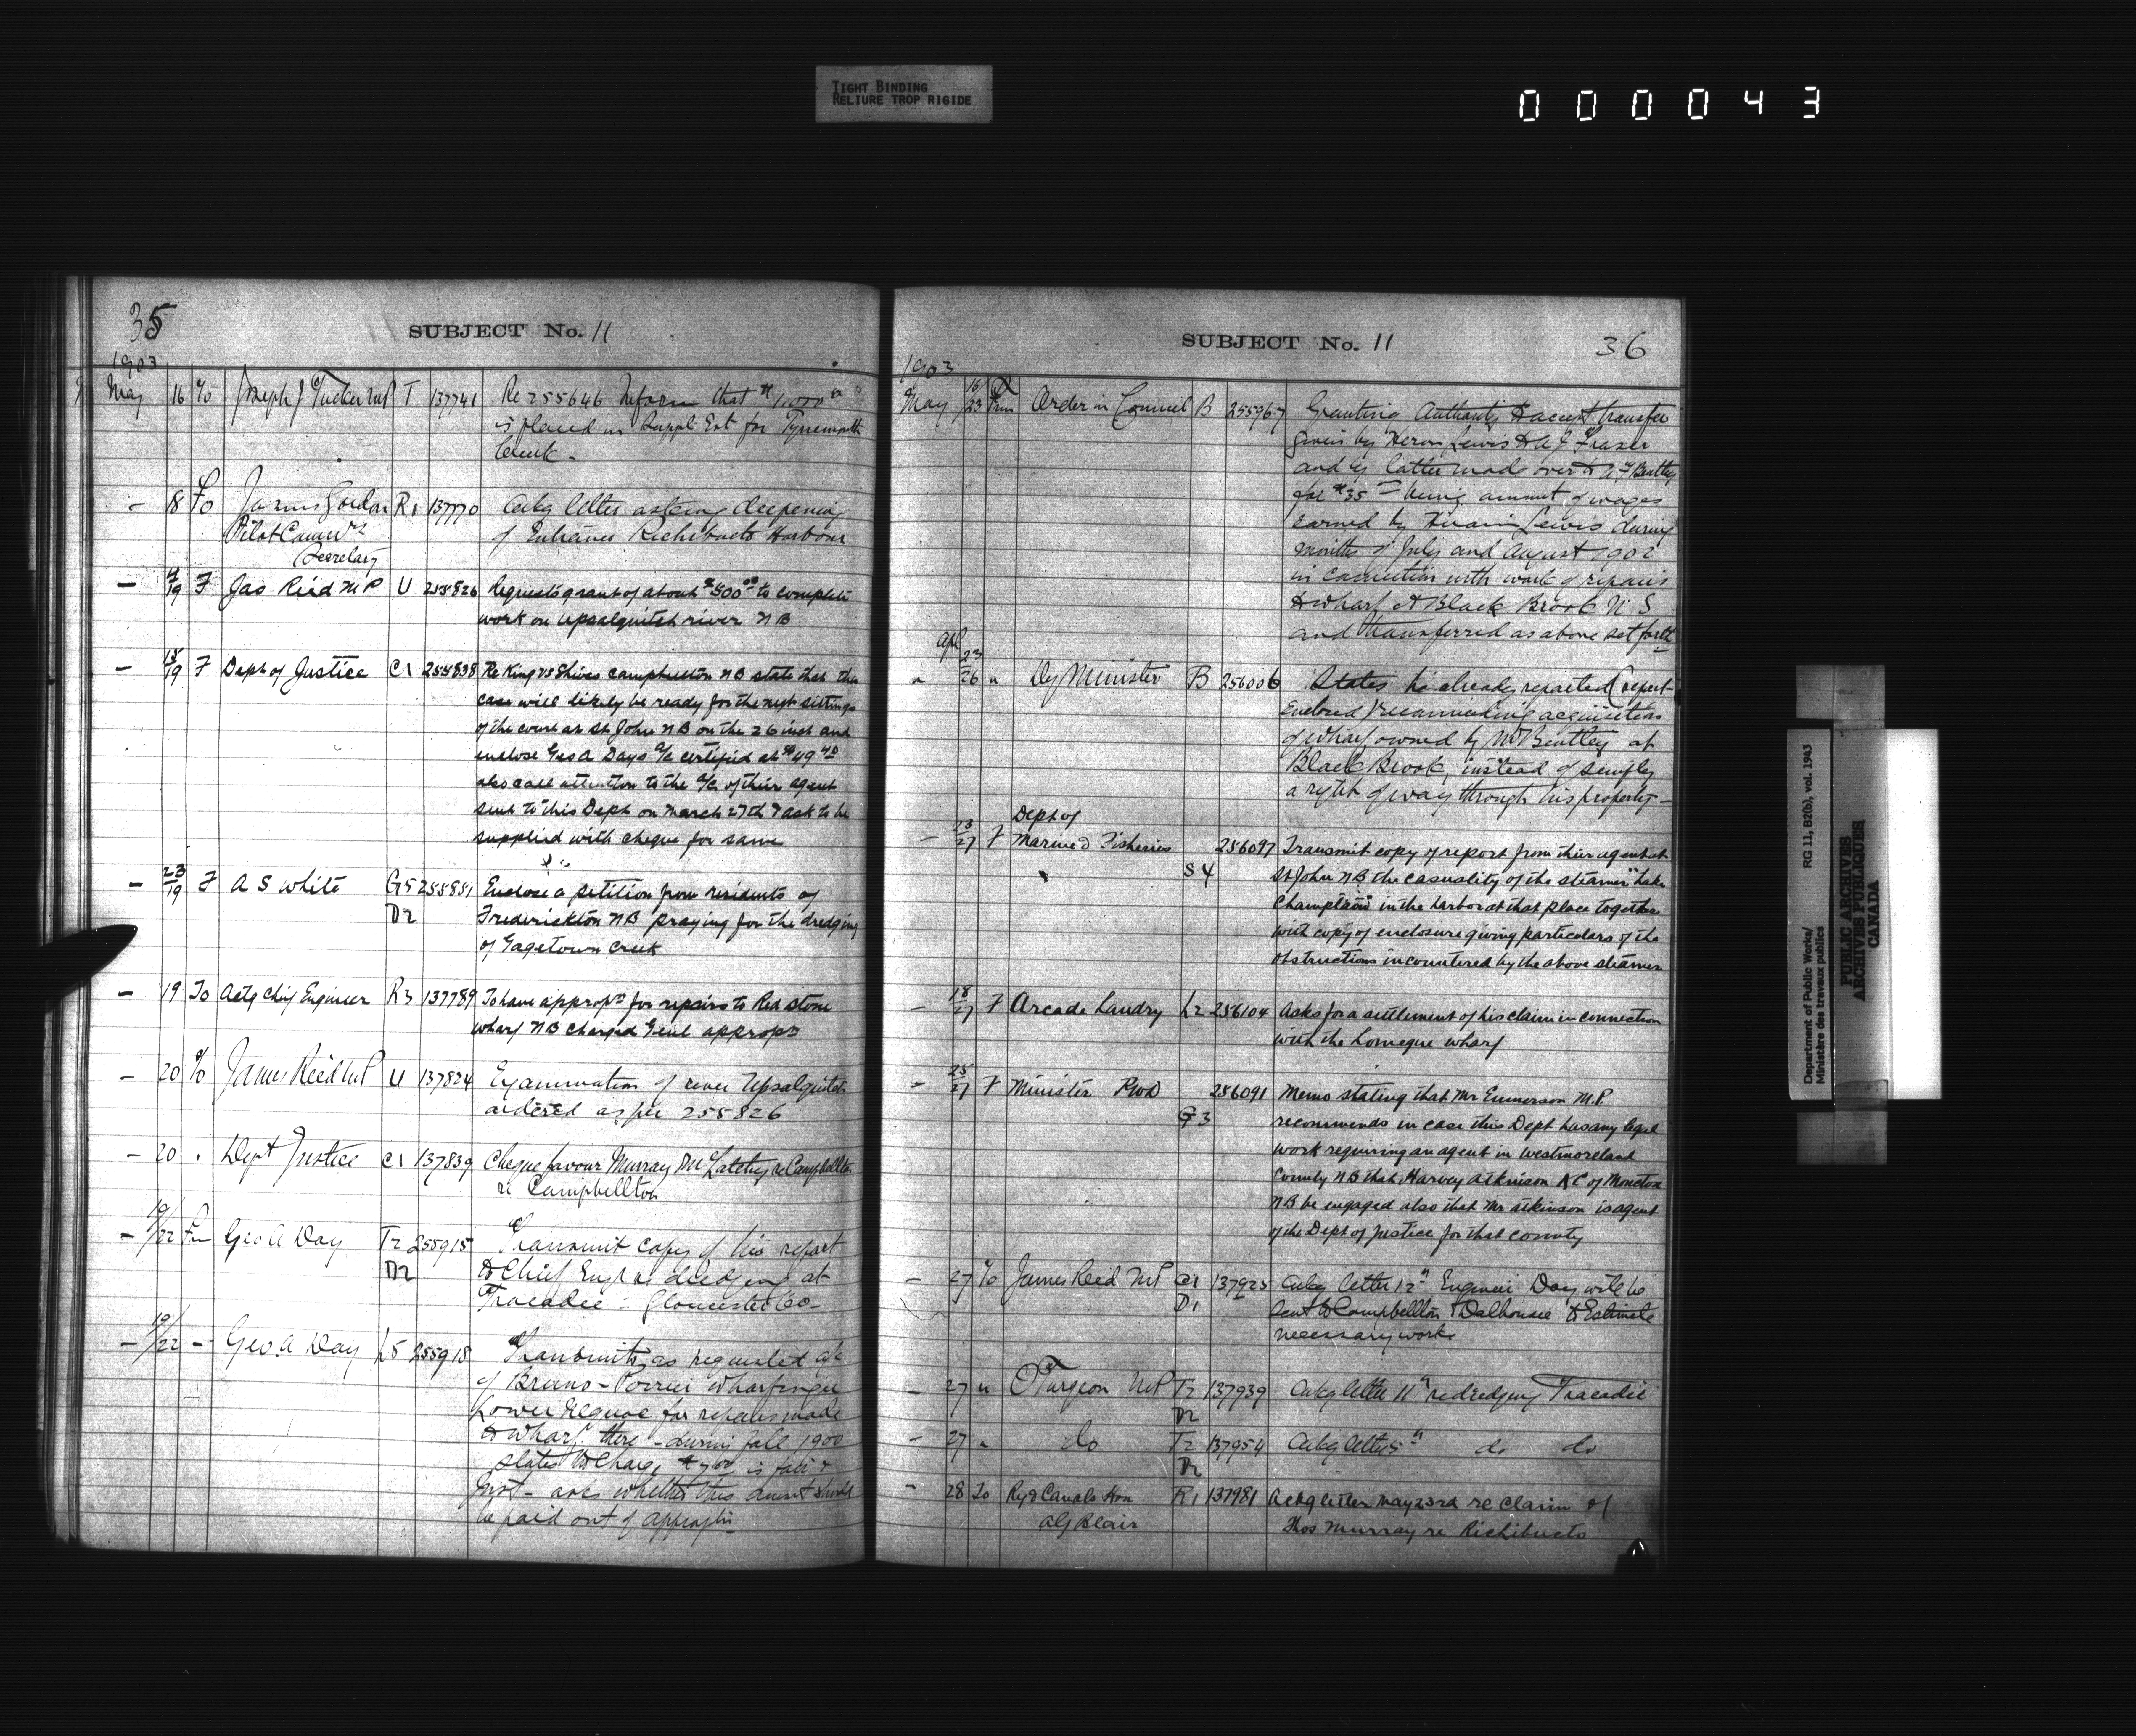 TIGHT BINDING
RELIURE TROP RIGIDE
000043
35
SUBJECT No. 11
1903
May 16 To Joseph J Tucker MP T 137741 Re 255646 Inform that $1,000
is placed in Suppl Est for Tynemouth
Creek -
- 18 To James Gordon R1 137770 Ackg letter asking deepening
Pilot Comrs of Entrance Richibucto Harbour
Secretary
- 19 F Jas Reid M P U 255826 Requests grant of about $500 00 to complete
work on Upsalquitch river N B
- 18/19 F Dept of Justice C1 255838 Re King vs Shives Campbellton N B state that the
case will likely be ready for the next sittings
of the court at St John N B on the 26 inst and
enclose Geo A Days a/c certified at $49 40
also call attention to the a/c of their agent
sent to this Dept on March 27th & ask to be
supplied with cheque for same
- 23/19 F A S White G5 255881 Enclose a petition from residents of
D2 Frederickton N B praying for the dredging
of Gagetown Creek
- 19 To Actg Chief Engineer R3 137789 To have approp n for repairs to Red stone
wharf N B charged Genl approps
- 20 To James Reid MP U 137824 Examination of river Upsalquitch
ordered as per 255826
- 20 . Dept Justice C1 137839 Cheque favour Murray McLatchy re Campbellton
re Campbellton
- 19/22 Fm Geo A Day T2 255915 Transmit copy of his report
D2 to Chief Engr re dredging at
Tracadie - Gloucester Co -
- 19/22 - Geo. A Day L5 255918 Transmits, as requested a/c
of Bruno - Poirier wharfinger
Lower Neguac for repairs made
to wharf there - during fall 1900
states the charge is fair &
just - asks whether this amount should
be paid out of
SUBJECT No. 11
36
1903
May 16/23 Frm Order in Council B 255967 Granting Authority to accept transfer
given by Lewis to A J Fraser
and by latter made over to Beattey
for $35 being amount of wages
earned by Hiram Lewis during
months of July and August 1902
in connection with work of repairs
to wharf at Black Brook N S
and transferred as above set forth
Apl
" 23/26 " Dy Minister B 256006 States he already reported (report
enclosed) recommending acquisition
of wharf owned by Mr Bentley at
Black Brook, instead of simply
a right of way through his property -
Dept of
- 23/27 F Marine & Fisheries 256097 Transmit copy of report from their agent at
S4 St John N B the casuality of the steamer "Lake
Champlain" in the harbor at that place together
with copy of enclosure giving particulars of the
obstructions incountered by the above steamer
- 18/27 F Arcade Landry L2 256104 Asks for a settlement of his claim in connection
with the Lameque wharf
- 25/27 F Minister P W D 256091 Memo stating that Mr Emmerson M.P.
G3 recommends in case this Dept has any legal
work requiring an agent in Westmoreland
County N B that Harvey Atkinson K C of Moncton
N B be engaged also that Mr Atkinson is agent
of the Dept of Justice for that county
- 27 To James Reid MP C1 137925 Ackg letter 12" Engineer Day will be
D1 sent to Campbellton & Dalhousie to Estimate
necessary works
- 27 " O Turgeon MP T2 137939 Ackg letter 11" re dredging Tracadie
D2
- 27 " do T2 137954 Ackg letter 5" do do
D2
- 28 To Rys & Canals Hon R1 137981 Ackg letter May 23rd re claim of
A G Blair Thos Murray re Richibucto
Department of Public Works/
Ministère des travaux publics
RG 11, B2(b), vol. 1943
PUBLIC ARCHIVES
ARCHIVES PUBLIQUES
CANADA